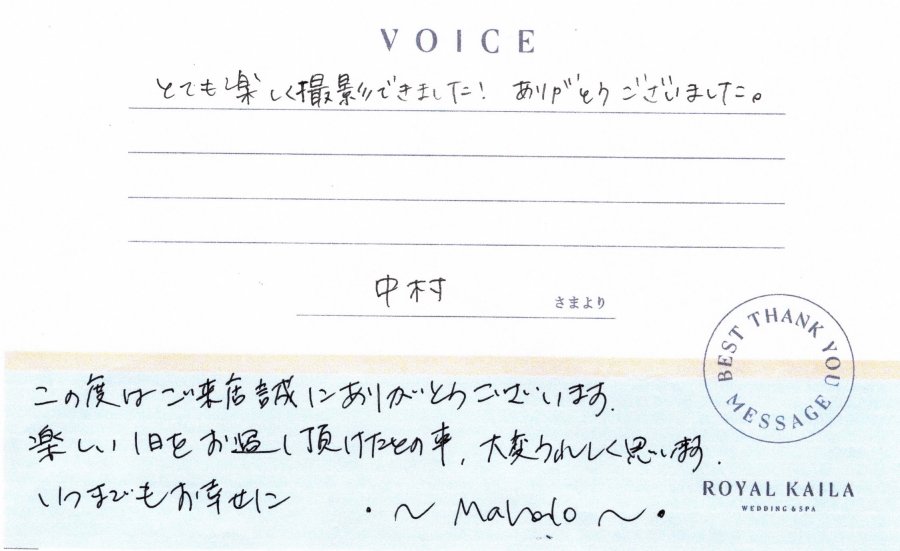 VOICE
とても楽しく撮影できました! ありがとうございました。
中村 さまより
BEST THANK YOU MESSAGE
この度はご来店誠にありがとうございます.
楽しい1日をお過し頂けたとの事, 大変うれしく思います.
いつまでもお幸せに
ROYAL KAILA
WEDDING & SPA